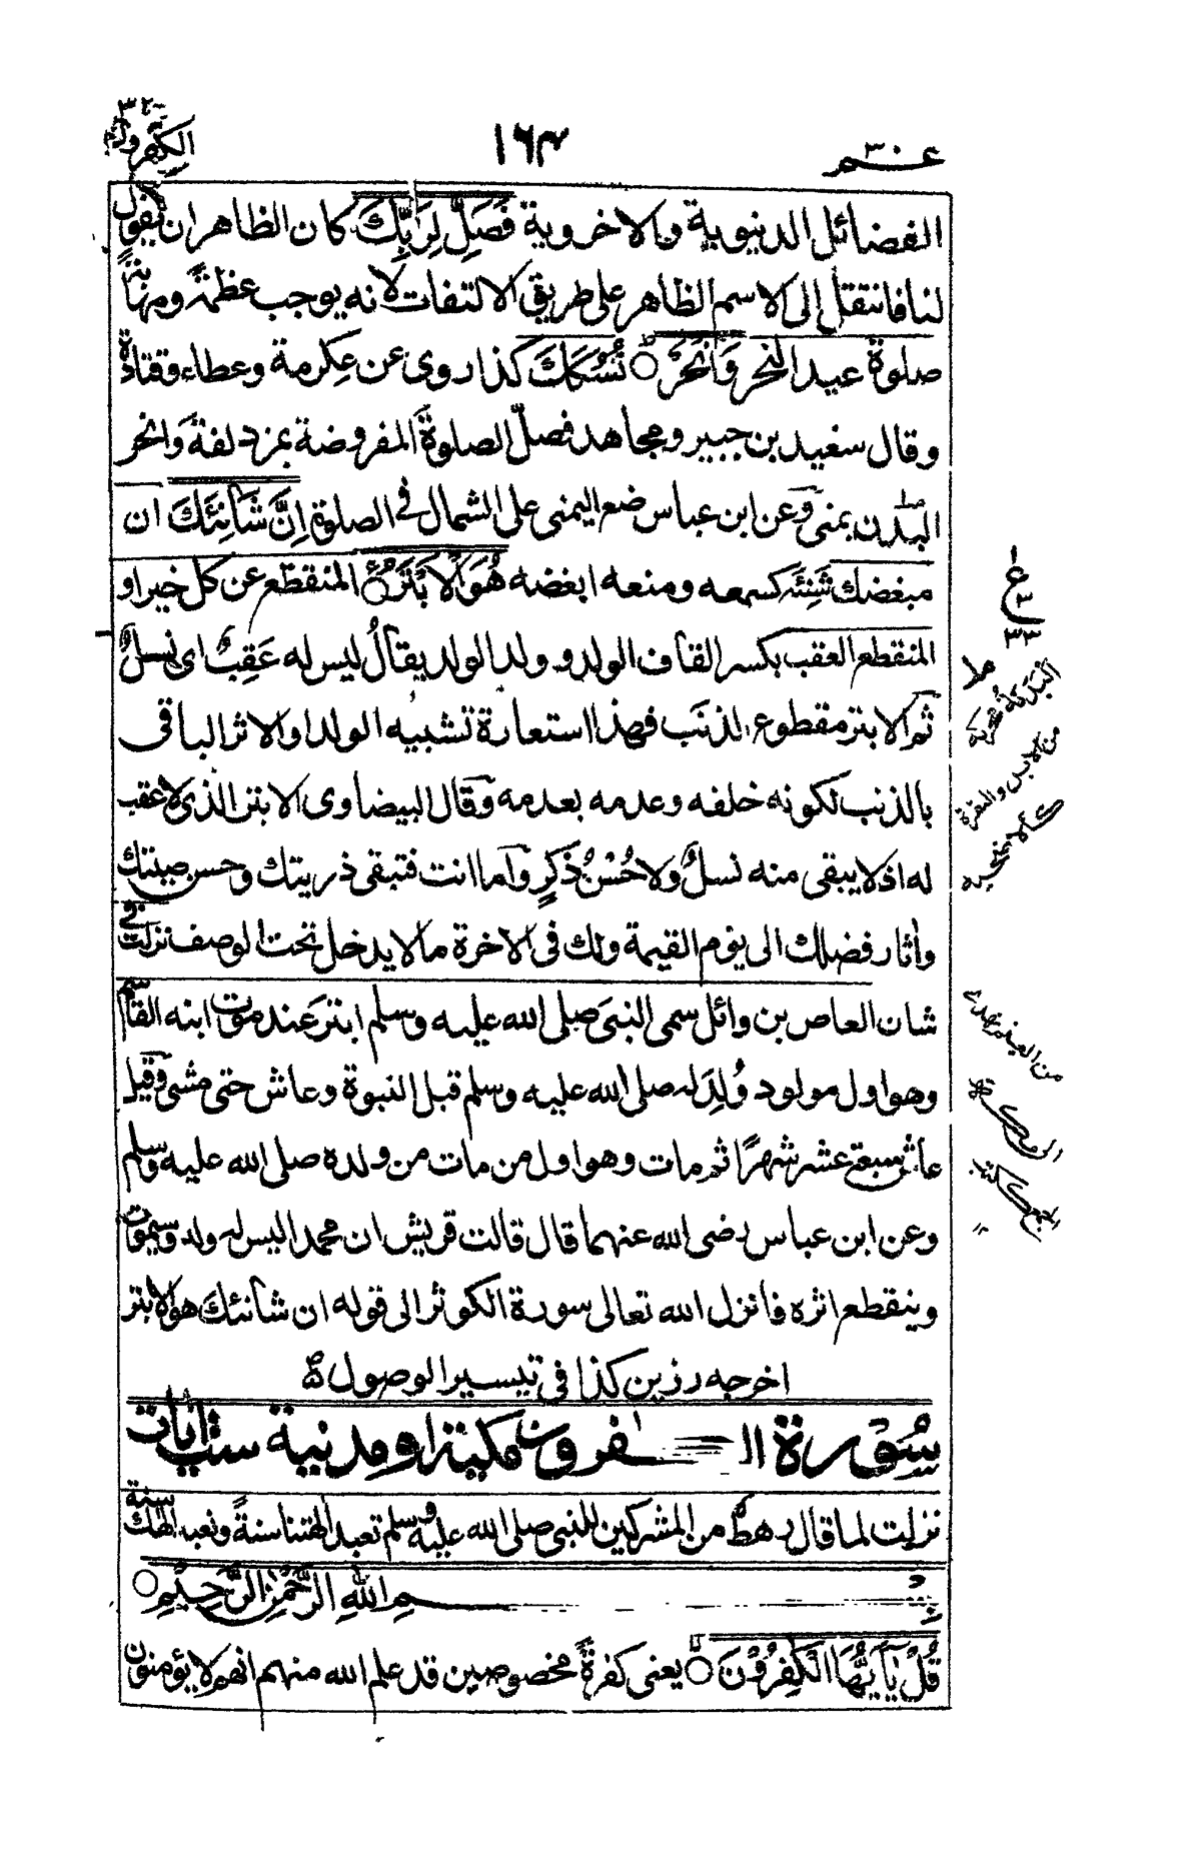 عـم ٣٠
١٦٣
الكفرون
الفضائل الدنيوية والاخروية فَصَلِّ لِرَبِّكَ كان الظاهر ان يقول
لنا فانتقل الى الاسم الظاهر على طريق الالتفات لانه يوجب عظمة ومهابة
صلوة عيد النحر وَانْحَرْ ○ نُسُكَكَ كذا روى عن عِكرمة وعطاء وقتادة
وقال سعيد بن جبير ومجاهد فصلّ الصلوةَ المفروضة بمزدلفة وَانحر
البُدْن بمنى وعن ابن عباس ضع اليمنى على الشمال فى الصلوة اِنَّ شَانِئَكَ ان
مبغضك شَنِئَه كسمعه ومنعه ابغضه هُوَ الْاَبْتَرُ ○ المنقطع عن كل خير او
المنقطع العقب بكسر القاف الولد و ولد الولد يقالُ ليس له عَقِبٌ اى نسلٌ
ثم الابتر مقطوع الذنَب فهذا استعارة تشبيه الولد او الاثر الباقى
بالذنب لكونه خلفه وعدمه بعدمه وقال البيضاوى الابتر الذى لا عقب
له اذ لا يبقى منه نسلٌ ولا حُسْنُ ذَكرٍ وآما انت فتبقى ذريتك وحسن صيتك
واٰثار فضلك الى يوم القيمة ولك فى الاخرة ما لا يدخل تحت الوصف نزلت فى
شان العاص بن وائل سمى النبىَ صلى الله عليه وسلم ابترَ عند موت ابنه القاسم
وهو اول مولود وُلِدَ له صلى الله عليه وسلم قبل النبوة وعاش حتى مشى وقيل
عاش سبعة عشر شهرًا ثم مات وهو اول من مات من ولده صلى الله عليه وسلم
وعن ابن عباس رضى الله عنهما قال قالت قريش ان محمدا ليس له ولد وسيموت
وينقطع اثره فانزل الله تعالى سورة الكوثر الى قوله ان شانئك هو الابتر
اخرجه رزين كذا فى تيسير الوصول
سُوْرة الـكفرون مكية او مدنية ست اٰيات
نزلت لما قال رهط من المشركين للنبى صلى الله عليه وسلم تعبد الهتنا سنةً ونعبد الهك سنة
بِسْـــمِ اللهِ الرَّحْمٰنِ الرَّحِيْمِ ○
قُلْ يٰٓاَيُّهَا الْكٰفِرُوْنَ ○ يعنى كفرةً مخصوصين قد علم الله منهم انهم لا يؤمنون
ع
٣٣
البدنة محركة
من الابل والبقرة
كالاضحية
من الغنم تهدى
الى مكة